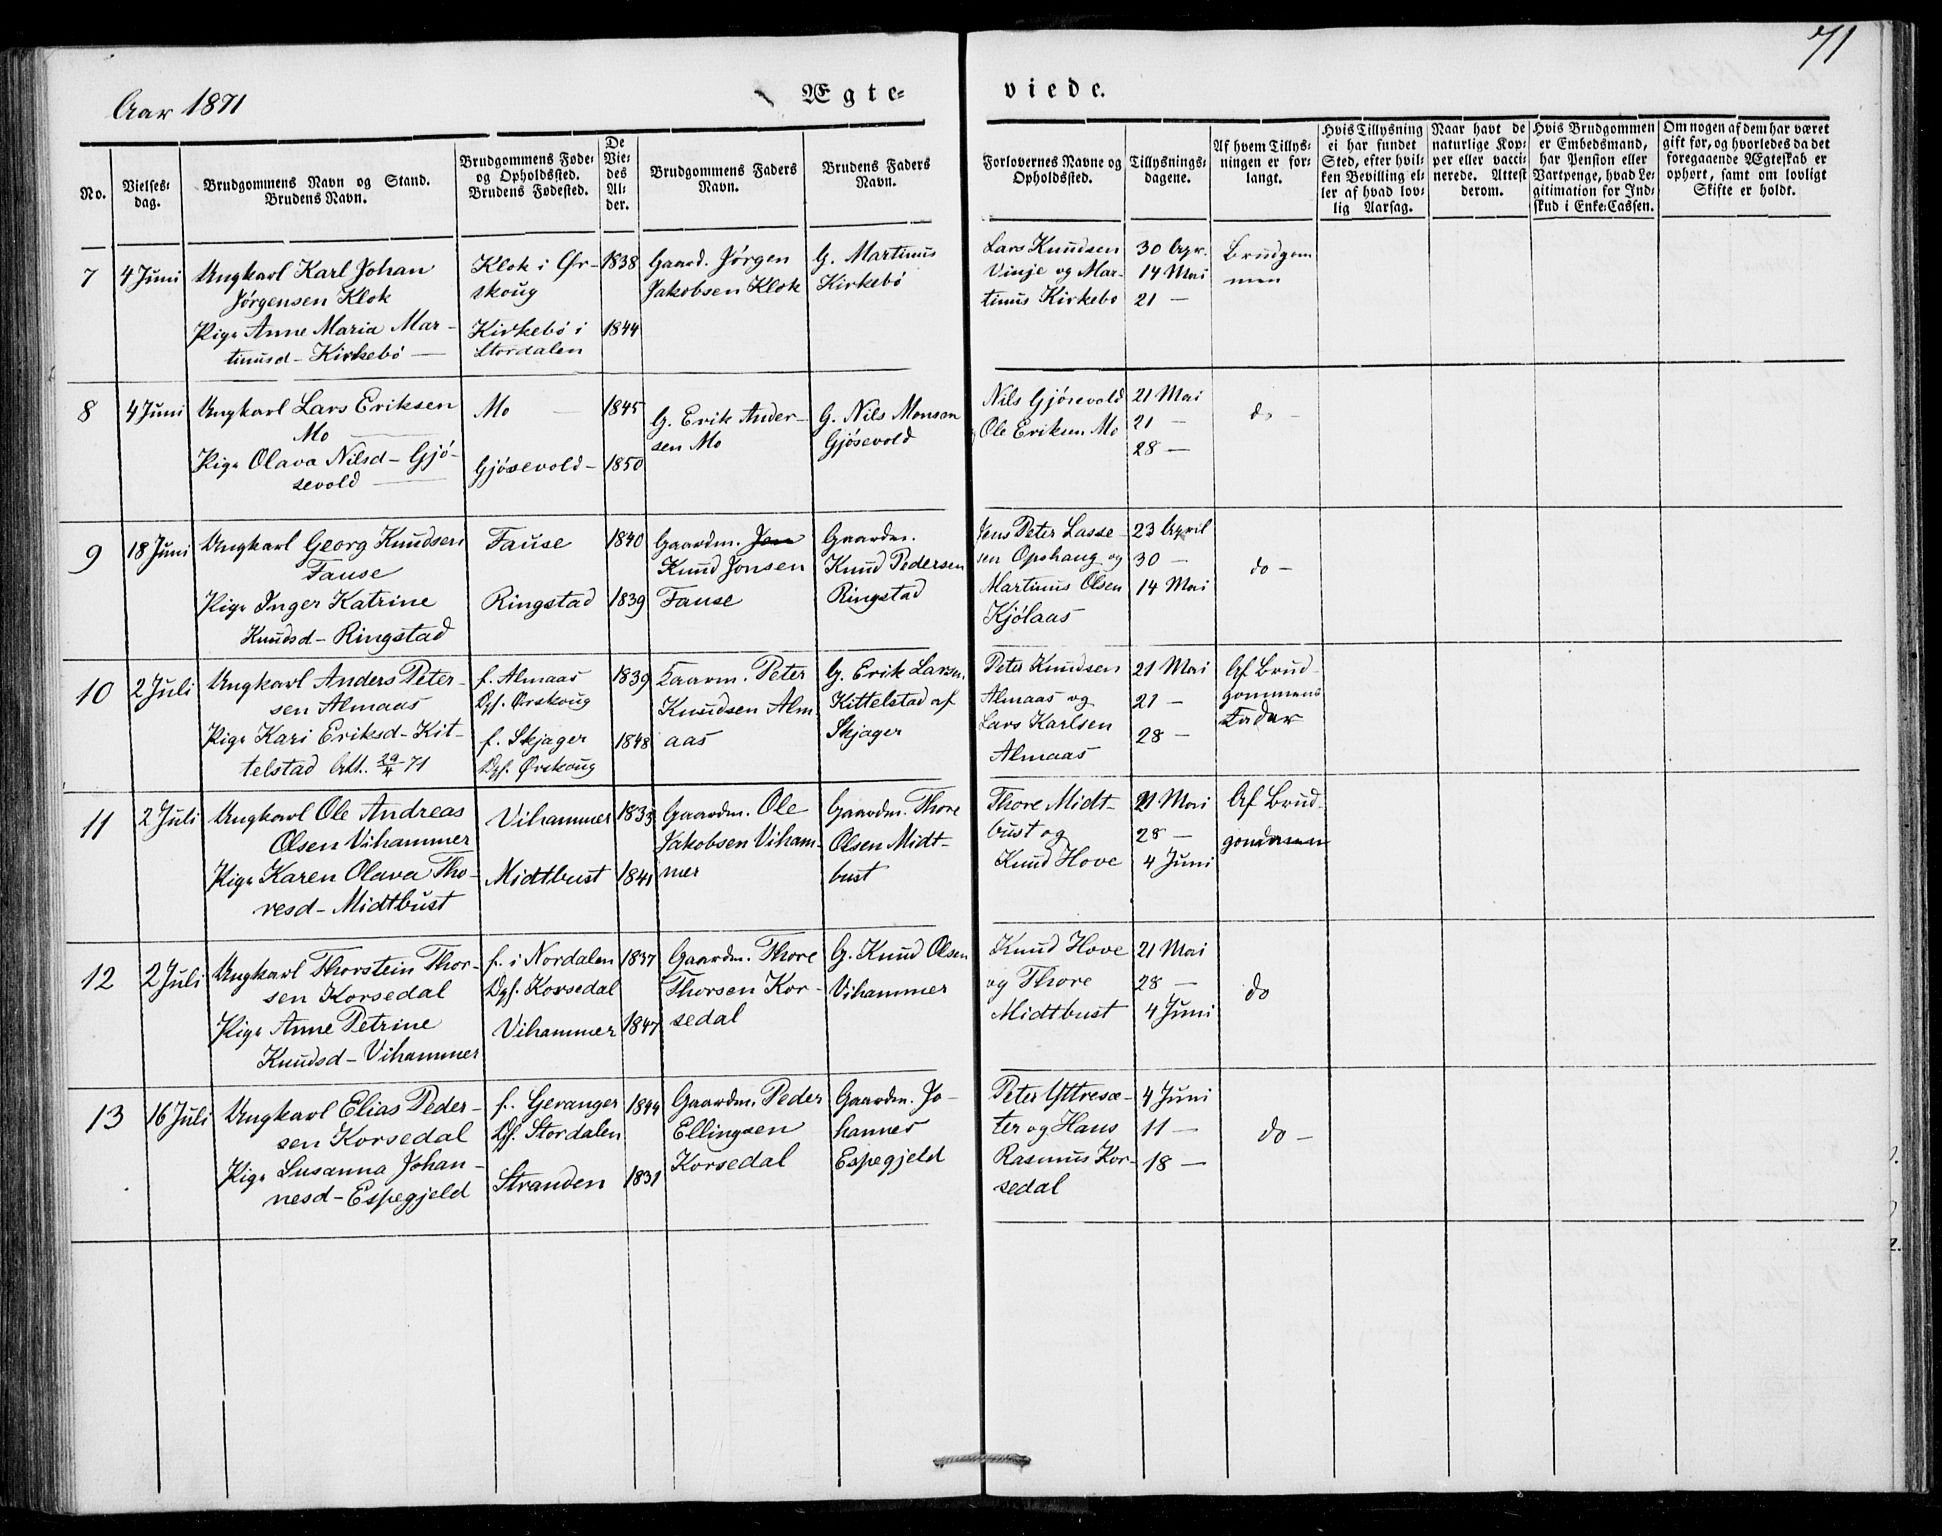 71
Aar 1871
Ægte=
viede.
No.
Vielses=
dag.
Brudgommens Navn og Stand.
Brudens Navn.
Brudgommens Føde=
og Opholdssted.
Brudens Fødested.
De
Vie=
des
Al=
der.
Brudgommens Faders
Navn.
Brudens Faders
Navn.
Forlovernes Navne og
Opholdssted.
Tillysnings=
dagene.
Af hvem Tillys=
ningen er for=
langt.
Hvis Tillysning
ei har fundet
Sted, efter hvil=
ken Bevilling el=
ler af hvad lov=
lig Aarsag.
Naar havt de
naturlige Kop=
per eller vacci=
nerede. Attest
derom.
Hvis Brudgommen
er Embedsmand,
har Pension eller
Vartpenge, hvad Le=
gitimation for Ind=
skud i Enke=Cassen.
Om nogen af dem har været
gift før, og hvorledes da det
foregaaende Ægteskab er
ophørt, samt om lovligt
Skifte er holdt.
7
4 Juni
Ungkarl Karl Johan
Jörgensen Klok
Pige Anne Maria Mar-
tinusd- Kirkebö
Klok i Ør-
skoug
Kirkebö i
Stordalen
1838
1844
Gaard. Jörgen
Jakobsen Klok
G. Martinus
Kirkebö
Lars Knudsen
Vinje og Mar-
tinus Kirkebo
30 Apr.
14 Mai
21 —
Brudgom
men
8
4 Juni
Ungkarl Lars Eriksen
Mo
Pige Olava Nilsd- Gjö-
sevold
Mo
Gjösevold-
1845
1850
G. Erik Ander-
sen Mo
G. Nils Monsen
Gjösevold
Nils Gjösevold
Ole Eriksen Mo
21 Mai
21 —
28 —
do -
9
18 Juni
Ungkarl Georg Knudsen
Fause
Pige Inger Katrine
Knudsd- Ringstad
Fause
Ringstad
1840
1839
Gaardm. Jon
Knud Jonsen
Fause
Gaardm.
Knud Pedersen
Ringstad
Jens Peter Lasse-
sen Opshaug og
Martinus Olsen
Kjölaas
23 April
30 —
14 Mai
do -
10
2 Juli
Ungkarl Anders Peter-
sen Almaas
Pige Kari Eriksd- Kit-
telstad Att. 29/4 71
f. Almaas
Opf. Ørskoug
f. Skjager
Opf. Ørskoug
1839
1848
Gaarm. Peter
Knudsen Alm
aas
G. Erik Larsen
Kittelstad af
Skjager
Peter Knudsen
Almaas og
Lars Karlsen
Almaas
21 Mai
21 —
28 —
Af Brud-
gommens
Fader
11
2 Juli
Ungkarl Ole Andreas
Olsen Vihammer
Pige Karen Olava Tho-
resd- Midtbust
Vihammer
Midtbust
1835
1841
Gaardm. Ole
Jakobsen Viham-
mer
Gaardm. Thore
Olsen Midt-
bust
Thore Midt-
bust og
Knud Hove
21 Mai
28 —
4 Juni
Af Brud-
12
2 Juli
Ungkarl Thorstein Thor-
sen Korsedal
Pige Anne Petrine
Knudsd- Vihammer
f. i Nordalen
Opf. Korsedal
Vihammer
1837
1847
Gaardm. Thore
Thorsen Kor-
sedal
G. Knud Olsen
Vihammer
Knud Hove
og Thore
Midtbust
21 Mai
28 —
4 Juni
do
13
16 Juli
Ungkarl Elias Peder-
sen Korsedal
Pige Susanna Johan-
nesd- Espegjeld
f. Geranger
Opf. Stordalen
Stranden
1844
1831
Gaardm. Peder
Ellingsen
Korsedal
Gaardm. Jo-
hannes
Espegjeld
Peter Yttresæ-
ter og Hans
Rasmus Kor-
sedal
4 Juni
11 —
18 —
do -